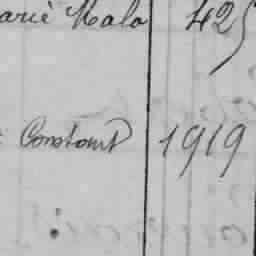 arie Malo 425
Constant 1919